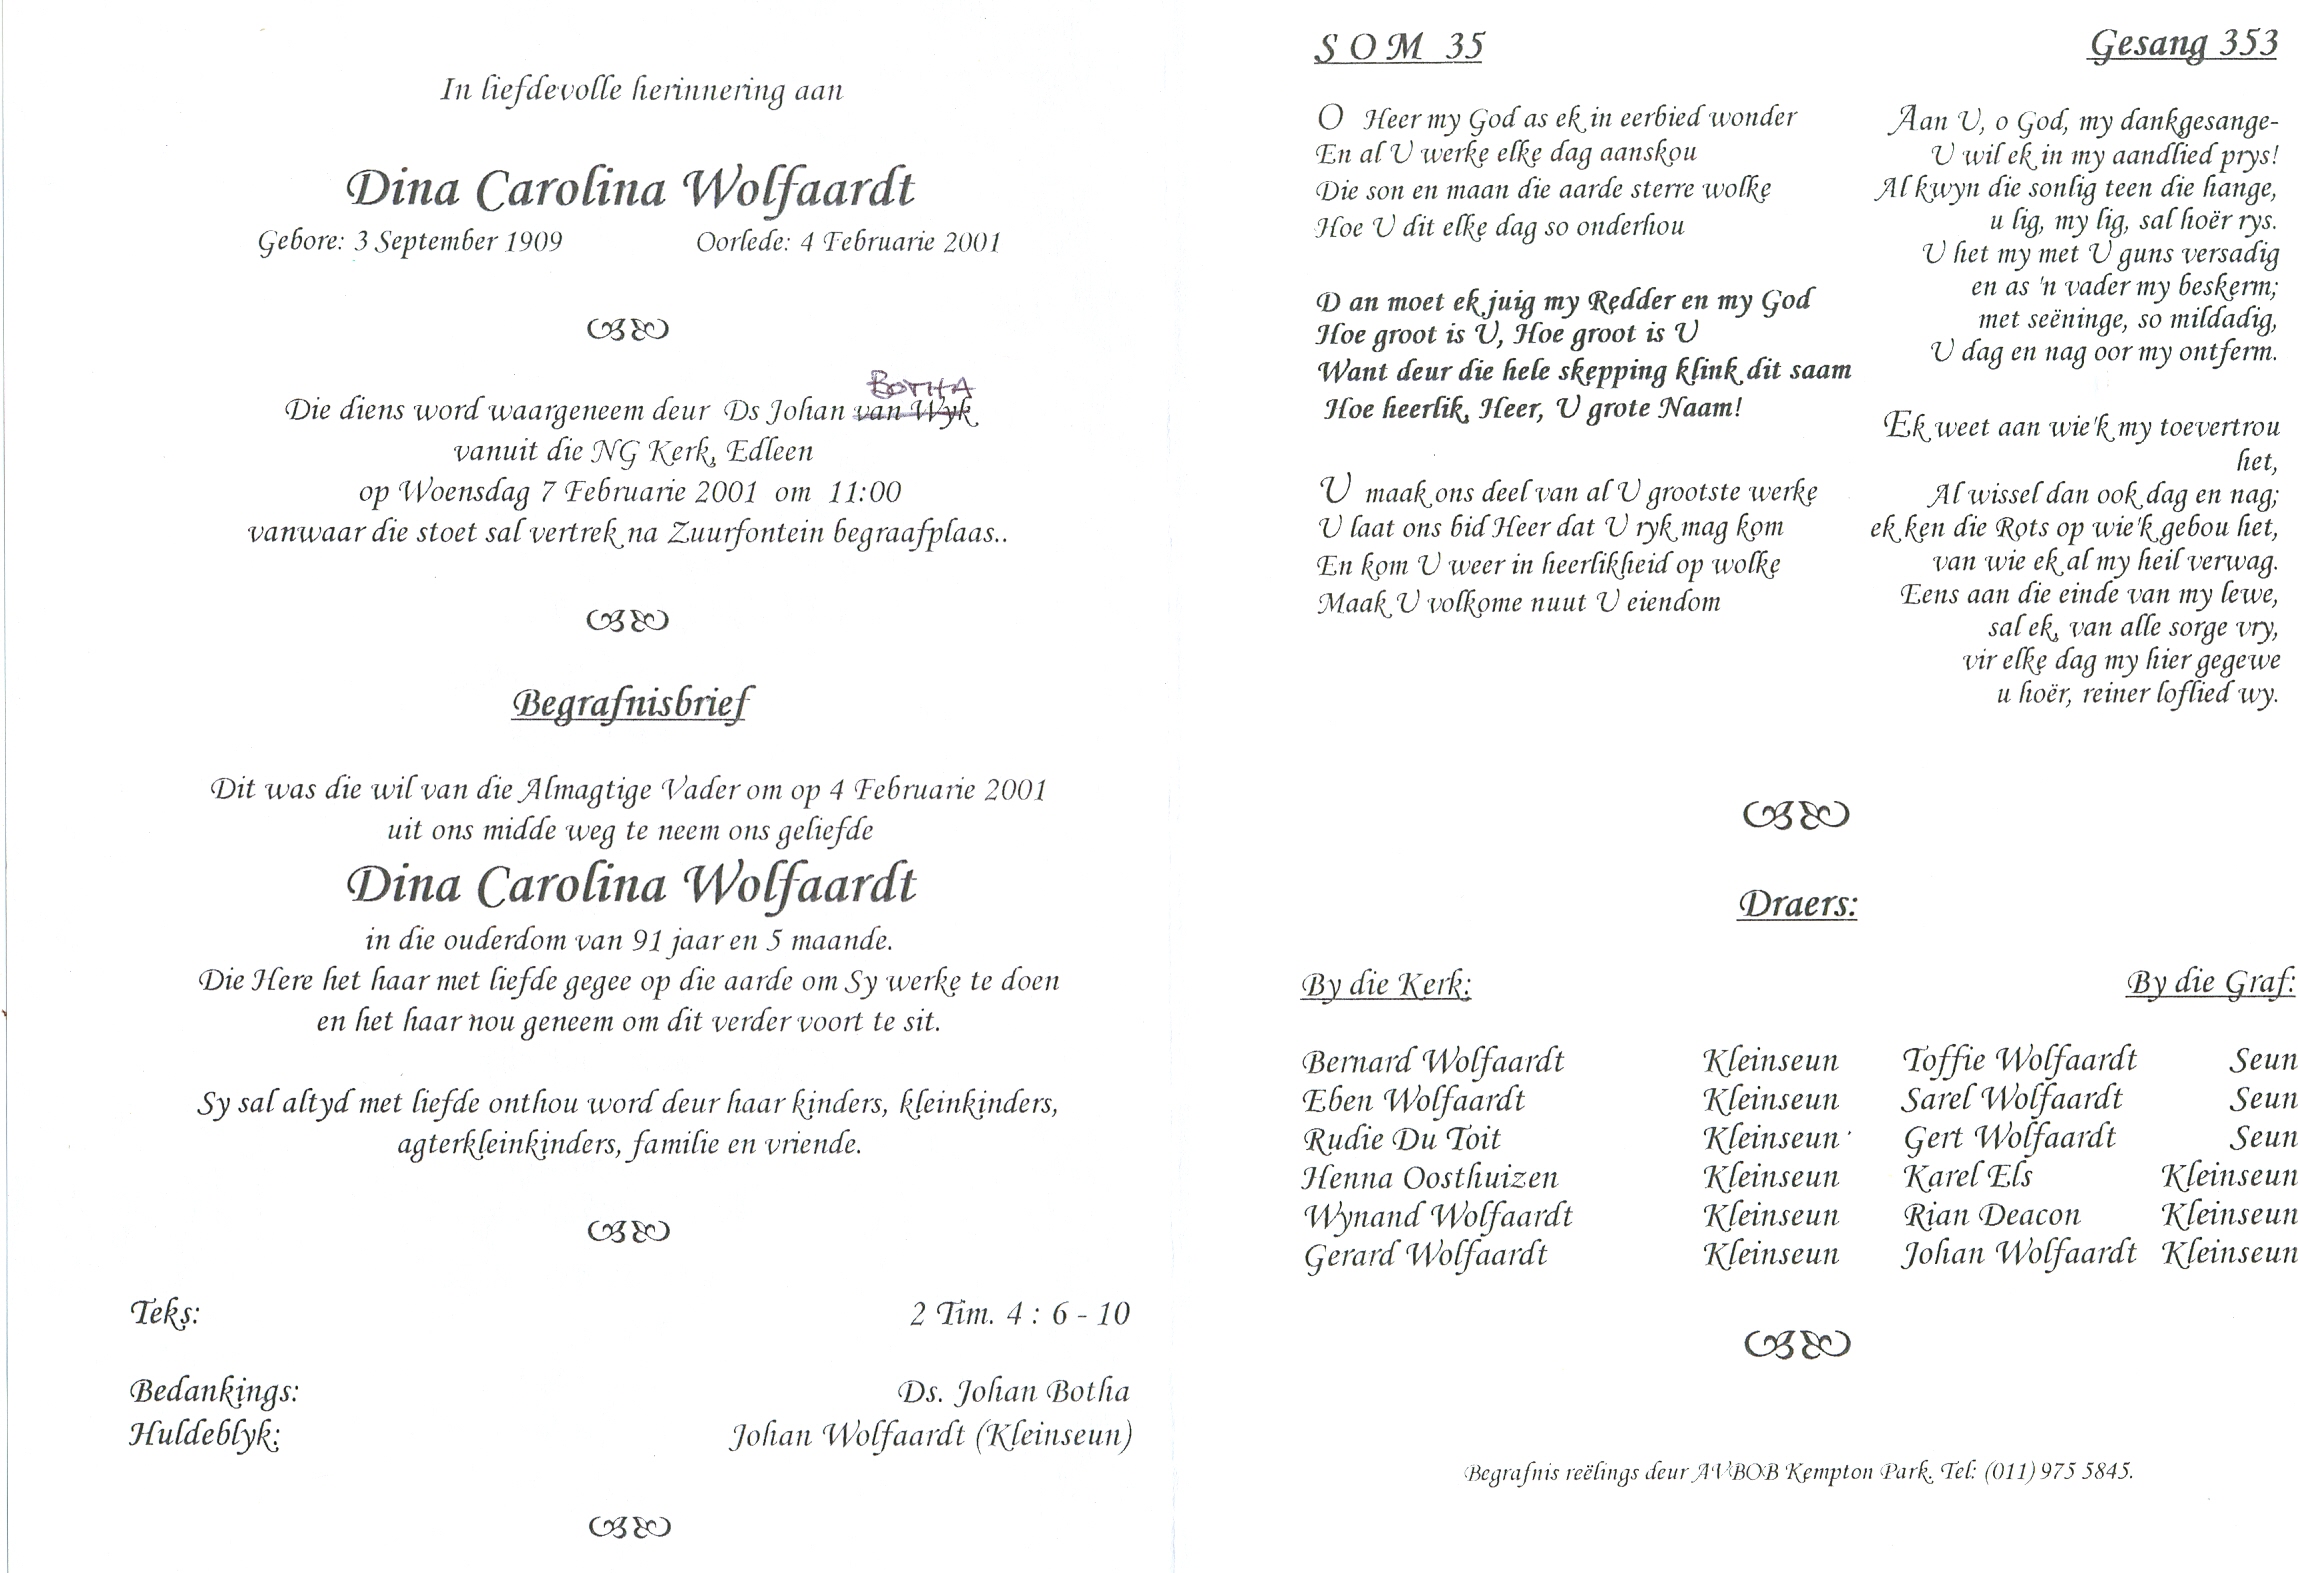 In liefdevolle herinnering aan
Dina Carolina Wolfaardt
Gebore: 3 September 1909 Oorlede: 4 Februarie 2001
BOTHA
Die diens word waargeneem deur Ds Johan van Wyk
vanuit die NG Kerk, Edleen
op Woensdag 7 Februarie 2001 om 11:00
vanwaar die stoet sal vertrek na Zuurfontein begraafplaas..
Begrafnisbrief
Dit was die wil van die Almagtige Vader om op 4 Februarie 2001
uit ons midde weg te neem ons geliefde
Dina Carolina Wolfaardt
in die ouderdom van 91 jaar en 5 maande.
Die Here het haar met liefde gegee op die aarde om Sy werke te doen
en het haar nou geneem om dit verder voort te sit.
Sy sal altyd met liefde onthou word deur haar kinders, kleinkinders,
agterkleinkinders, familie en vriende.
Teks: 2 Tim. 4 : 6 - 10
Bedankings: Ds. Johan Botha
Huldeblyk: Johan Wolfaardt (Kleinseun)
S O M 35
O Heer my God as ek in eerbied wonder
En al U werke elke dag aanskou
Die son en maan die aarde sterre wolke
Hoe U dit elke dag so onderhou
D an moet ek juig my Redder en my God
Hoe groot is U, Hoe groot is U
Want deur die hele skepping klink dit saam
Hoe heerlik, Heer, U grote Naam!
U maak ons deel van al U grootste werke
U laat ons bid Heer dat U ryk mag kom
En kom U weer in heerlikheid op wolke
Maak U volkome nuut U eiendom
Gesang 353
Aan U, o God, my dankgesange-
U wil ek in my aandlied prys!
Al kwyn die sonlig teen die hange,
u lig, my lig, sal hoër rys.
U het my met U guns versadig
en as 'n vader my beskerm;
met seëninge, so mildadig,
U dag en nag oor my ontferm.
Ek weet aan wie'k my toevertrou
het,
Al wissel dan ook dag en nag;
ek ken die Rots op wie'k gebou het,
van wie ek al my heil verwag.
Eens aan die einde van my lewe,
sal ek, van alle sorge vry,
vir elke dag my hier gegewe
u hoër, reiner loflied wy.
Draers:
By die Kerk:
Bernard Wolfaardt Kleinseun
Eben Wolfaardt Kleinseun
Rudie Du Toit Kleinseun
Henna Oosthuizen Kleinseun
Wynand Wolfaardt Kleinseun
Gerard Wolfaardt Kleinseun
By die Graf:
Toffie Wolfaardt Seun
Sarel Wolfaardt Seun
Gert Wolfaardt Seun
Karel Els Kleinseun
Rian Deacon Kleinseun
Johan Wolfaardt Kleinseun
Begrafnis reëlings deur AVBOB Kempton Park. Tel: (011) 975 5845.